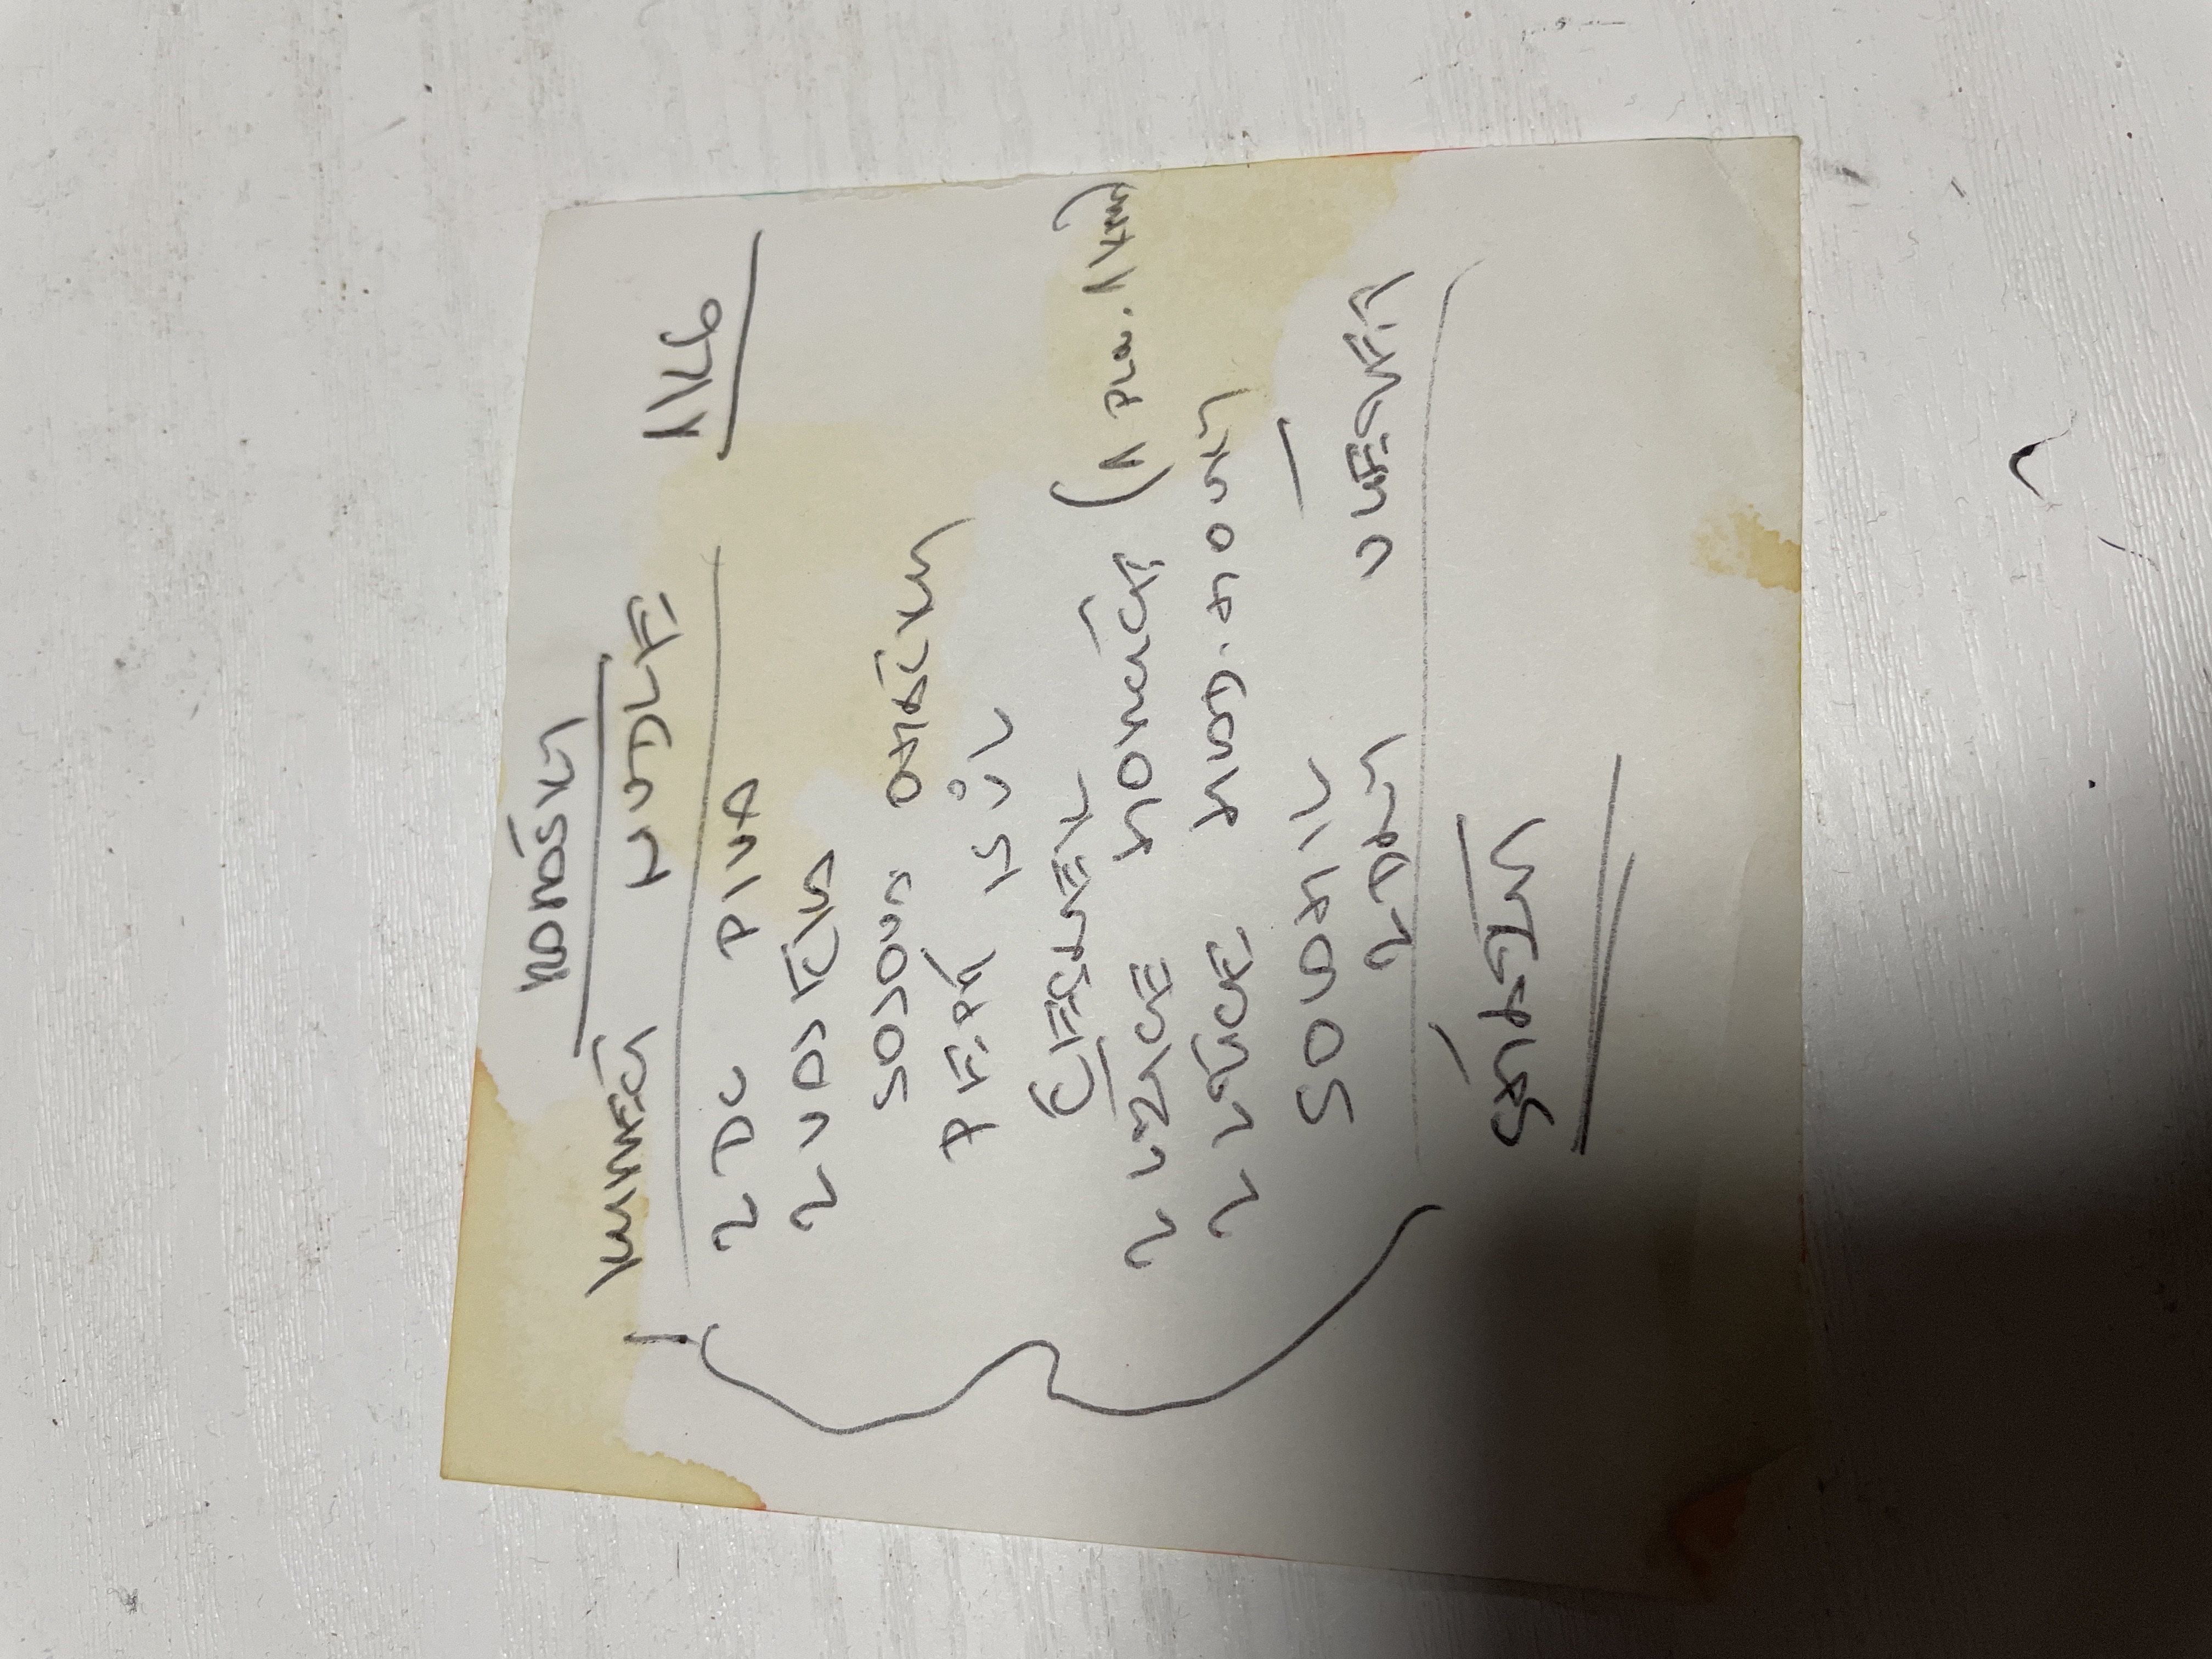 KOMOŠKY
KUŘECÍ NUDLE 1KG
2 DC PIVA
2 VAJEČKA
SOJOVA OMÁČKA
PEPŘ, SŮL
ČESNEK
2 LŽÍCE HOŘČICE (1 PLN. 1 KREM)
2 LŽÍCE HLAD. MOUKY
SOLAMIL
2 DNY ULEŽET
SMAŽÍM